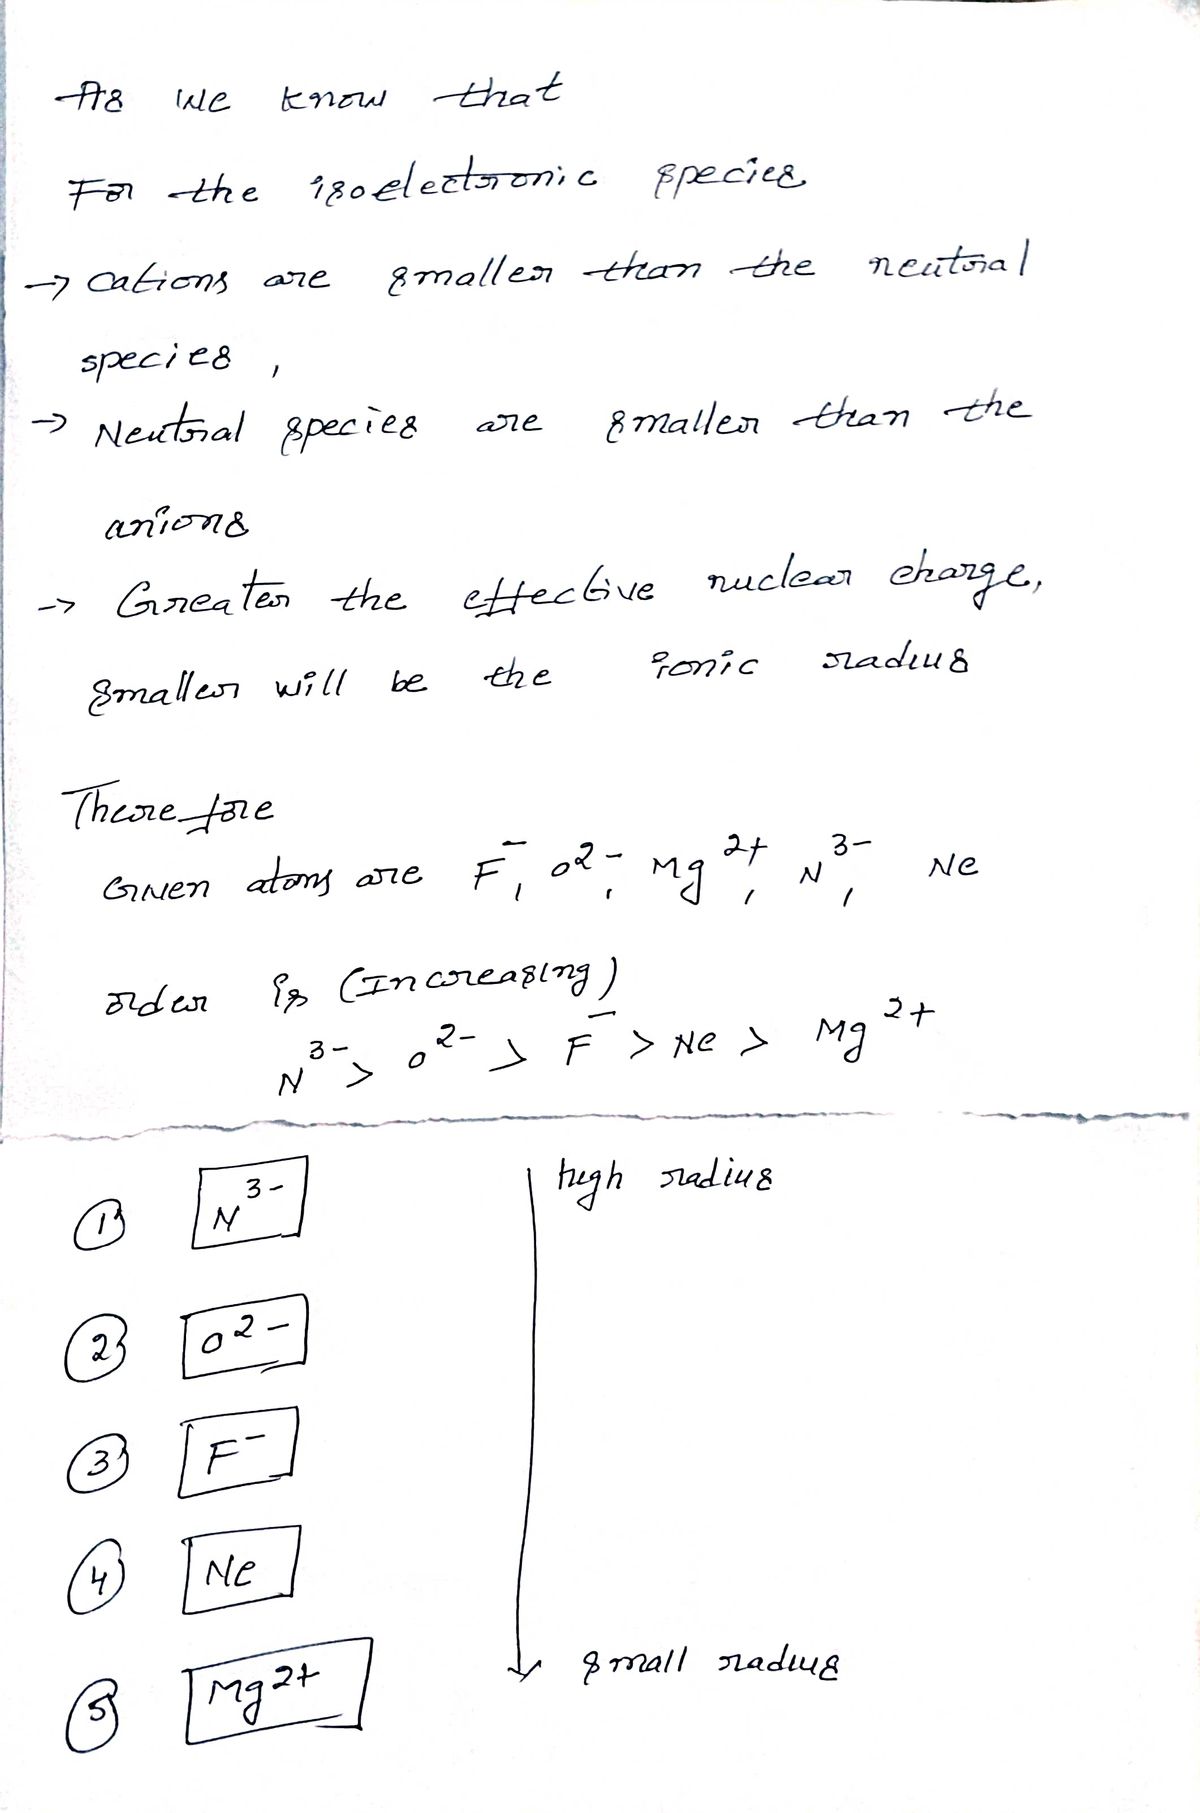 As we know that
For the isoelectronic species
→ Cations are smaller than the neutral
species,
→ Neutral species are smaller than the
anions
→ Greater the effective nuclear charge,
smaller will be the ionic radius
Therefore
Given atoms are F⁻, O²⁻, Mg²⁺, N³⁻, Ne
order is (Increasing)
N³⁻ > O²⁻ > F⁻ > Ne > Mg²⁺
① N³⁻ high radius
② O²⁻
③ F⁻
④ Ne
⑤ Mg²⁺ small radius